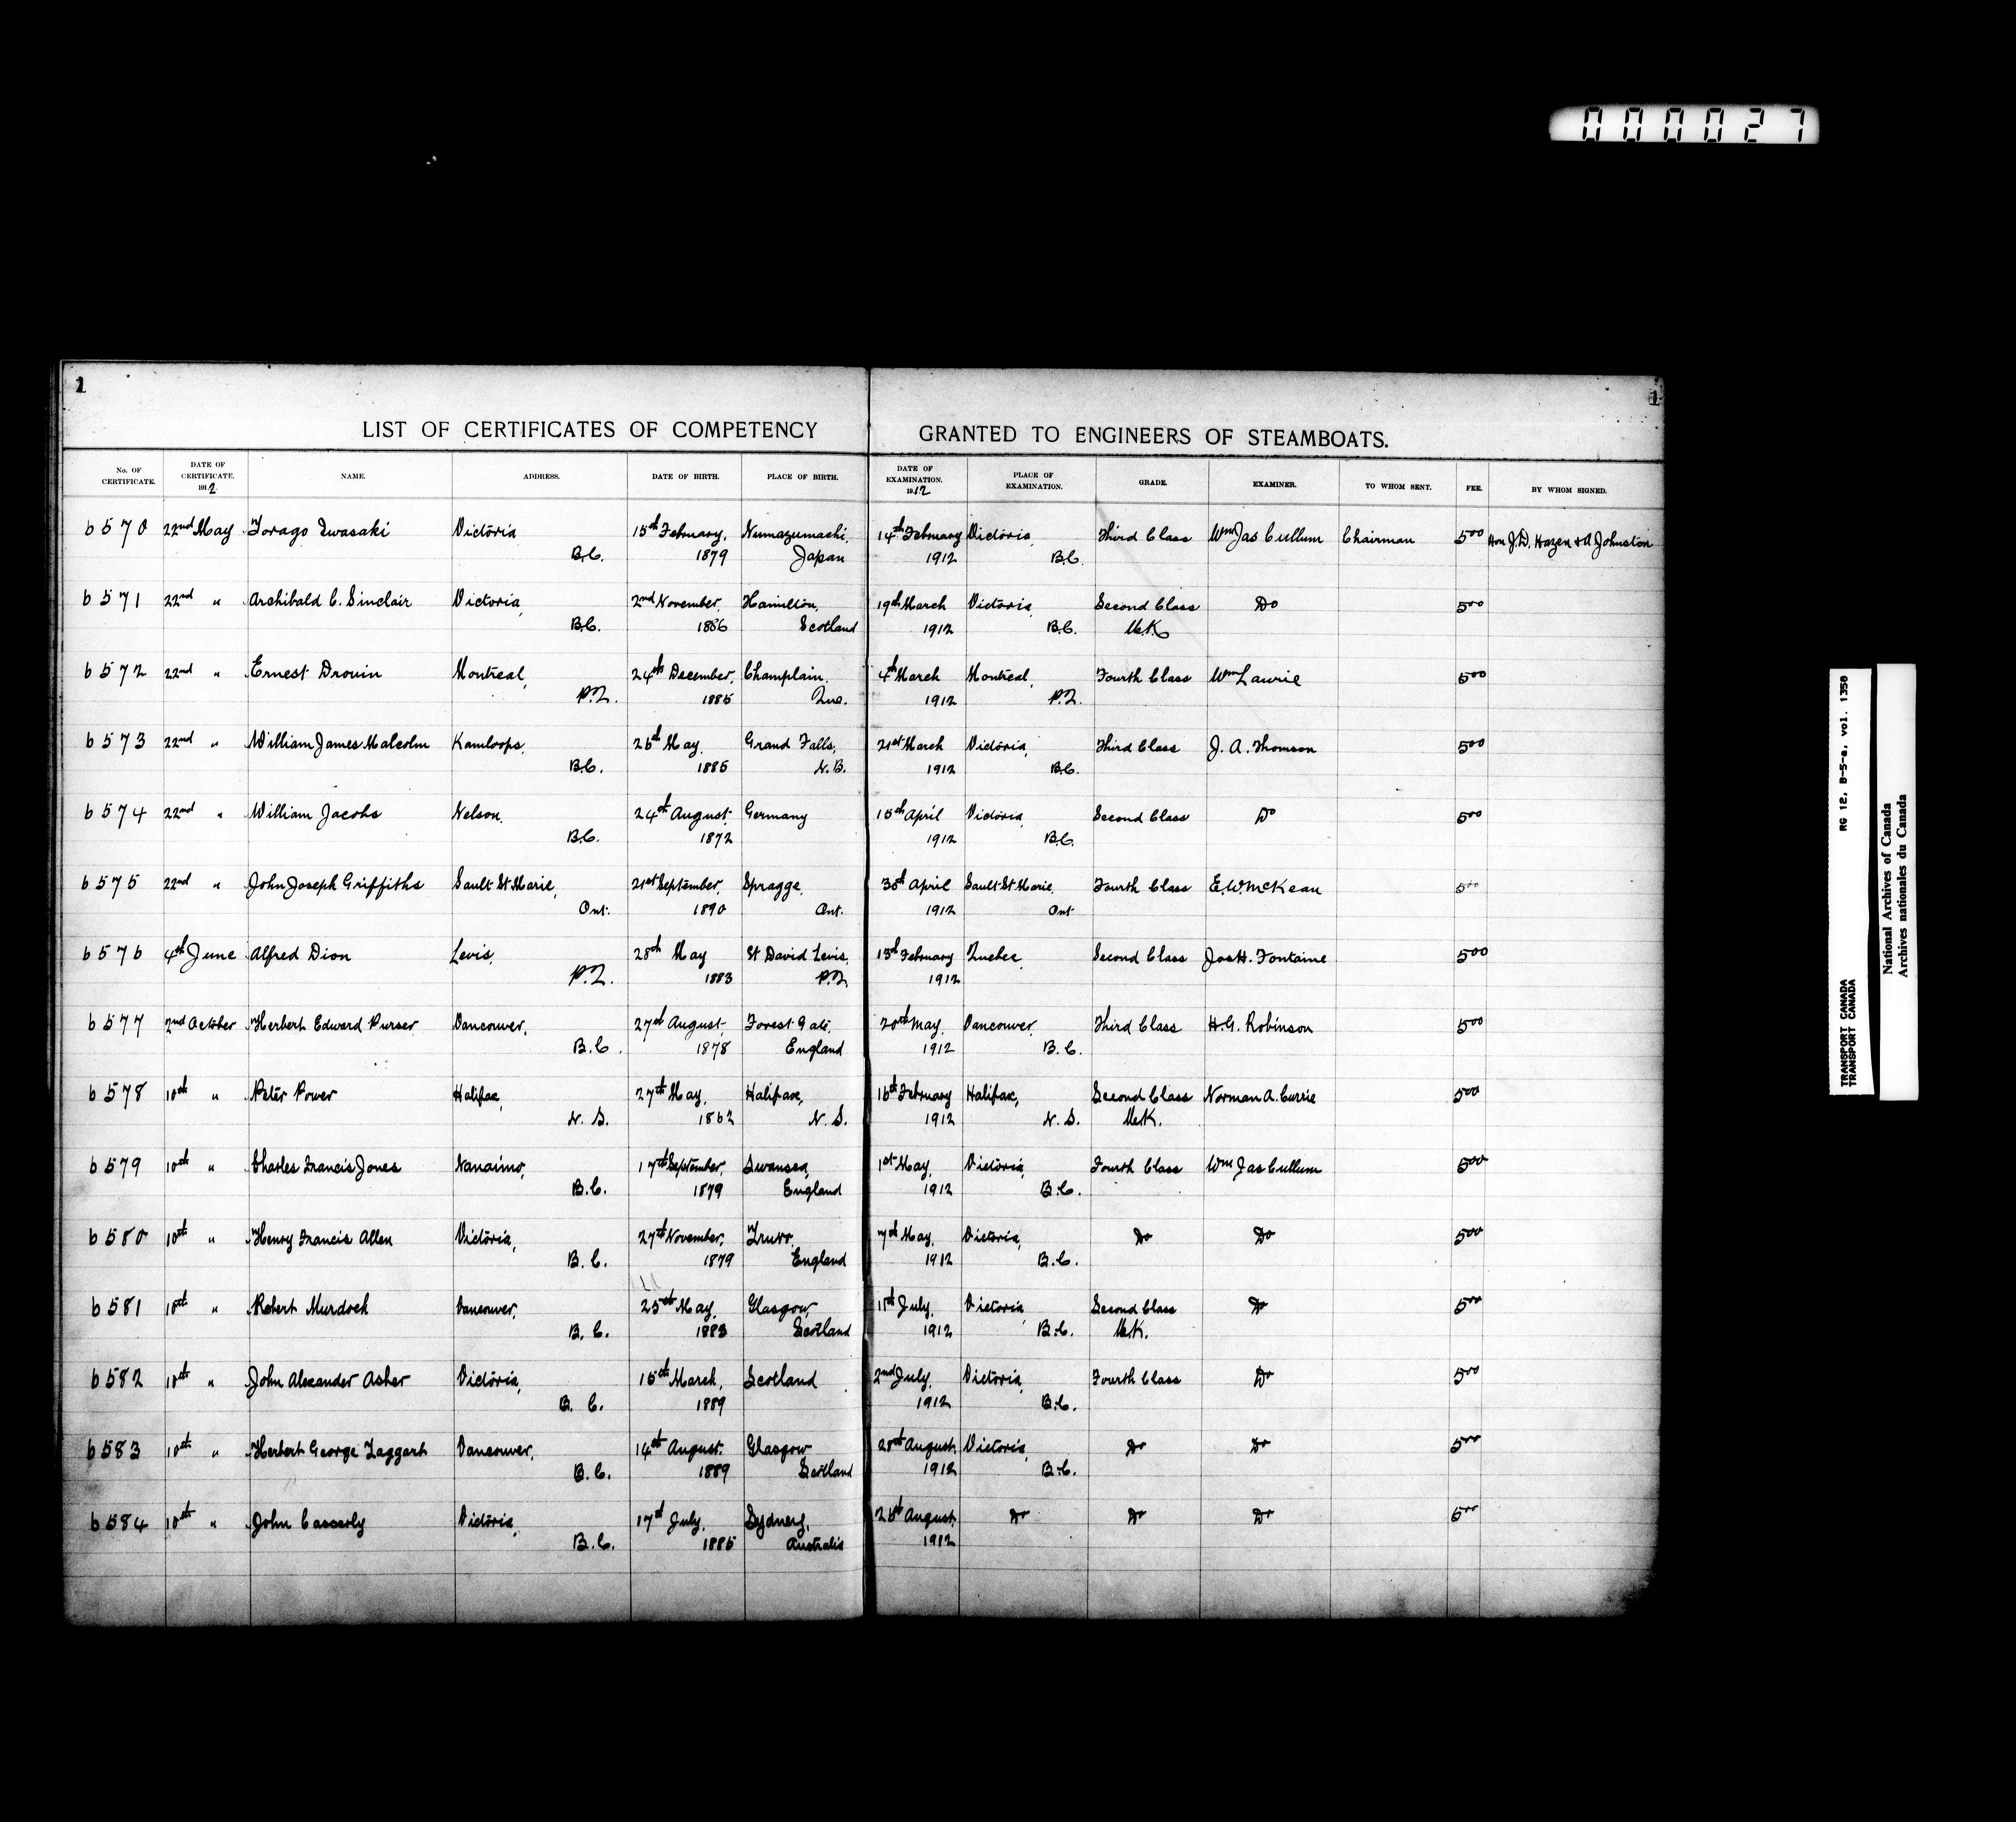 000027
1
1
LIST OF CERTIFICATES OF COMPETENCY GRANTED TO ENGINEERS OF STEAMBOATS.
No. OF CERTIFICATE. DATE OF CERTIFICATE. 1912 NAME. ADDRESS. DATE OF BIRTH. PLACE OF BIRTH. DATE OF EXAMINATION. 1912 PLACE OF EXAMINATION. GRADE. EXAMINER. TO WHOM SENT. FEE. BY WHOM SIGNED.
6570 22nd May Torago Iwasaki Victoria 15th February, Numazumachi, 14th February Victoria, Third Class Wm Jas Cullum Chairman 500 Hon J.D. Hazen & A Johnston
B.C. 1879 Japan 1912 B.C.
6571 22nd " Archibald C. Sinclair Victoria, 2nd November, Hamilton, 19th March Victoria, Second Class Do 500
B.C. 1886 Scotland 1912 B.C. U.K.
6572 22nd " Ernest Drouin Montreal, 24th December, Champlain, 4th March Montreal, Fourth Class Wm Laurie 500
P.Q. 1885 Que. 1912 P.Q.
6573 22nd " William James Malcolm Kamloops, 26th May, Grand Falls, 21st March Victoria, Third Class J. A. Thomson 500
B.C. 1885 N.B. 1912 B.C.
6574 22nd " William Jacobs Nelson, 24th August, Germany 15th April Victoria, Second Class Do 500
B.C. 1872 1912 B.C.
6575 22nd " John Joseph Griffiths Sault St Marie, 21st September, Spragge, 30th April Sault St Marie, Fourth Class E.W. McKean 500
Ont. 1890 Ont. 1912 Ont
6576 4th June Alfred Dion Levis, 28th May St David Levis, 13th February Quebec Second Class Jos H. Fontaine 500
P.Q. 1883 P.Q. 1912
6577 2nd October Herbert Edward Purser Vancouver, 27th August, Forest Gate, 20th May, Vancouver, Third Class H.G. Robinson 500
B.C. 1878 England 1912 B.C.
6578 10th " Peter Power Halifax, 27th May, Halifax, 16th February Halifax, Second Class Norman A. Currie 500
N. S. 1862 N. S. 1912 N. S. U.K.
6579 10th " Charles Francis Jones Nanaimo, 17th September, Swansea, 1st May, Victoria, Fourth Class Wm Jas Cullum 500
B.C. 1879 England 1912 B.C.
6580 10th " Henry Francis Allen Victoria, 27th November, Truro, 7th May, Victoria, Do Do 500
B. C. 1879 England 1912 B.C.
6581 10th " Robert Murdoch Vancouver, 25th May, Glasgow, 11th July, Victoria, Second Class Do 500
B. C. 1883 Scotland 1912 B.C. U.K.
6582 10th " John Alexander Asher Victoria, 15th March, Scotland 2nd July, Victoria, Fourth Class Do 500
B. C. 1889 1912 B.C.
6583 10th " Herbert George Taggart Vancouver, 14th August, Glasgow 28th August, Victoria, Do Do 500
B.C. 1889 Scotland 1912 B.C.
6584 10th " John Casserly Victoria, 17th July, Sydney, 26th August, Do Do Do 500
B.C. 1885 Australia 1912
TRANSPORT CANADA RG 12, B-5-a, vol. 1350
TRANSPORT CANADA
National Archives of Canada
Archives nationales du Canada